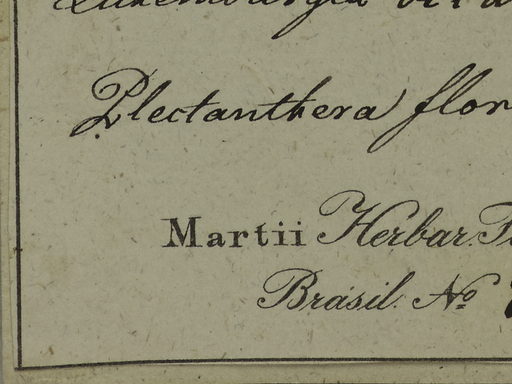 Plectanthera flor
Martii Herbar. F
Brasil. No